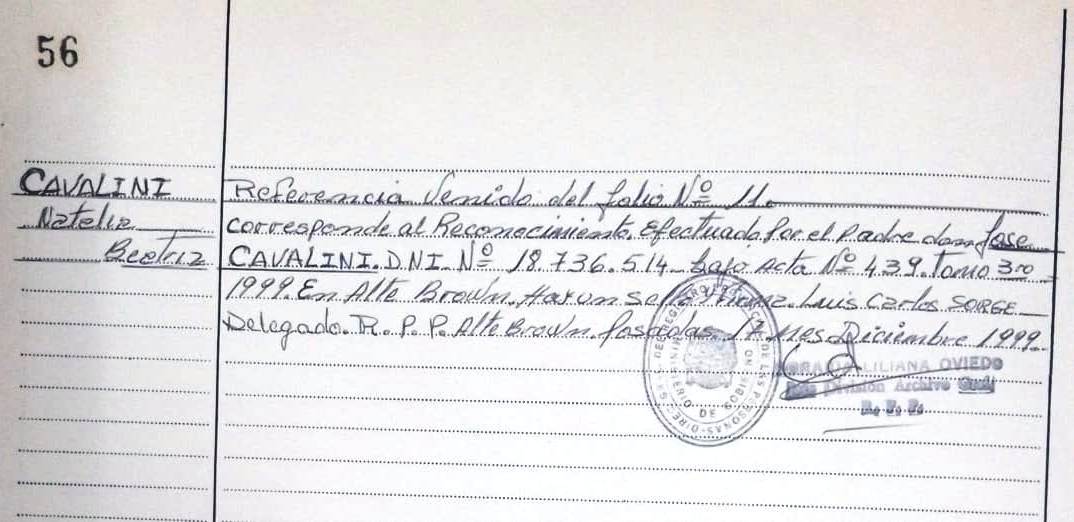 56
CAVALINI
Natalia
Beatriz
Referencia Venido del folio Nº 11.
corresponde al Reconocimiento. Efectuado Por el Padre don Jose
CAVALINI. D.N.I. Nº 18.736.514 bajo Acta Nº 439. Tomo 3ro
1999. En Alte Brown. Hay un sello y firma. Luis Carlos SORGE
Delegado. R. P. P. Alte Brown. Posadas, 17 Mes Diciembre 1999.
LILIANA OVIEDO
División Archivo Gral
R. P. P.
DE LAS PERSONAS
DE GOBIERNO